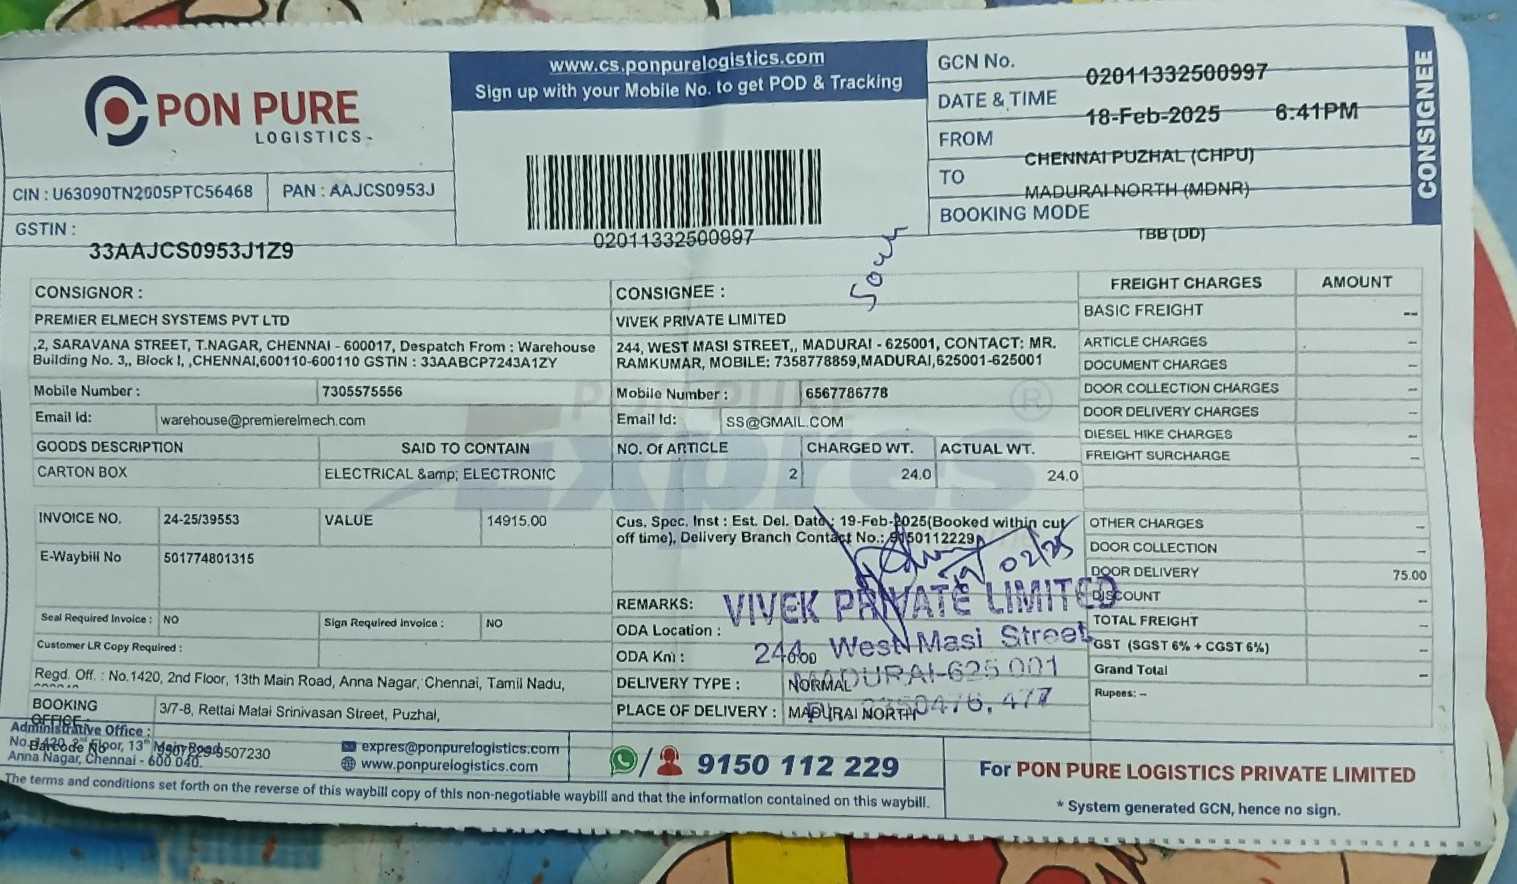 PON PURE
LOGISTICS
www.cs.ponpurelogistics.com
Sign up with your Mobile No. to get POD & Tracking
02011332500997
GCN No. 02011332500997
DATE & TIME 18-Feb-2025 6:41PM
FROM CHENNAI PUZHAL (CHPU)
TO MADURAI NORTH (MDNR)
BOOKING MODE TBB (DD)
CONSIGNEE
CIN : U63090TN2005PTC56468 PAN : AAJCS0953J
GSTIN : 33AAJCS0953J1Z9
CONSIGNOR :
PREMIER ELMECH SYSTEMS PVT LTD
,2, SARAVANA STREET, T.NAGAR, CHENNAI - 600017, Despatch From : Warehouse
Building No. 3,, Block I, ,CHENNAI,600110-600110 GSTIN : 33AABCP7243A1ZY
Mobile Number : 7305575556
Email Id: warehouse@premierelmech.com
CONSIGNEE :
VIVEK PRIVATE LIMITED
244, WEST MASI STREET,, MADURAI - 625001, CONTACT: MR.
RAMKUMAR, MOBILE: 7358778859,MADURAI,625001-625001
Mobile Number : 6567786778
Email Id: SS@GMAIL.COM
PON PURE
Expres
®
GOODS DESCRIPTION SAID TO CONTAIN NO. Of ARTICLE CHARGED WT. ACTUAL WT.
CARTON BOX ELECTRICAL &amp; ELECTRONIC 2 24.0 24.0
INVOICE NO. 24-25/39553 VALUE 14915.00
E-Waybill No 501774801315
Seal Required Invoice : NO Sign Required Invoice : NO
Customer LR Copy Required :
Regd. Off. : No.1420, 2nd Floor, 13th Main Road, Anna Nagar, Chennai, Tamil Nadu,
BOOKING OFFICE: 3/7-8, Rettai Malai Srinivasan Street, Puzhal,
Cus. Spec. Inst : Est. Del. Date : 19-Feb-2025(Booked within cut
off time), Delivery Branch Contact No.: 9150112229
19/02/25
REMARKS:
ODA Location :
ODA Km : 0.00
DELIVERY TYPE : NORMAL
PLACE OF DELIVERY : MADURAI NORTH
VIVEK PRIVATE LIMITED
244, West Masi Street
MADURAI-625 001
FREIGHT CHARGES AMOUNT
BASIC FREIGHT --
ARTICLE CHARGES --
DOCUMENT CHARGES --
DOOR COLLECTION CHARGES --
DOOR DELIVERY CHARGES --
DIESEL HIKE CHARGES --
FREIGHT SURCHARGE --
OTHER CHARGES --
DOOR COLLECTION --
DOOR DELIVERY 75.00
DISCOUNT --
TOTAL FREIGHT --
GST (SGST 6% + CGST 6%) --
Grand Total --
Rupees: --
Administrative Office :
No. 1420, 2nd Floor, 13th Main Road,
Anna Nagar, Chennai - 600 040.
Barcode No 9507229-9507230
expres@ponpurelogistics.com
www.ponpurelogistics.com
9150 112 229
For PON PURE LOGISTICS PRIVATE LIMITED
* System generated GCN, hence no sign.
The terms and conditions set forth on the reverse of this waybill copy of this non-negotiable waybill and that the information contained on this waybill.